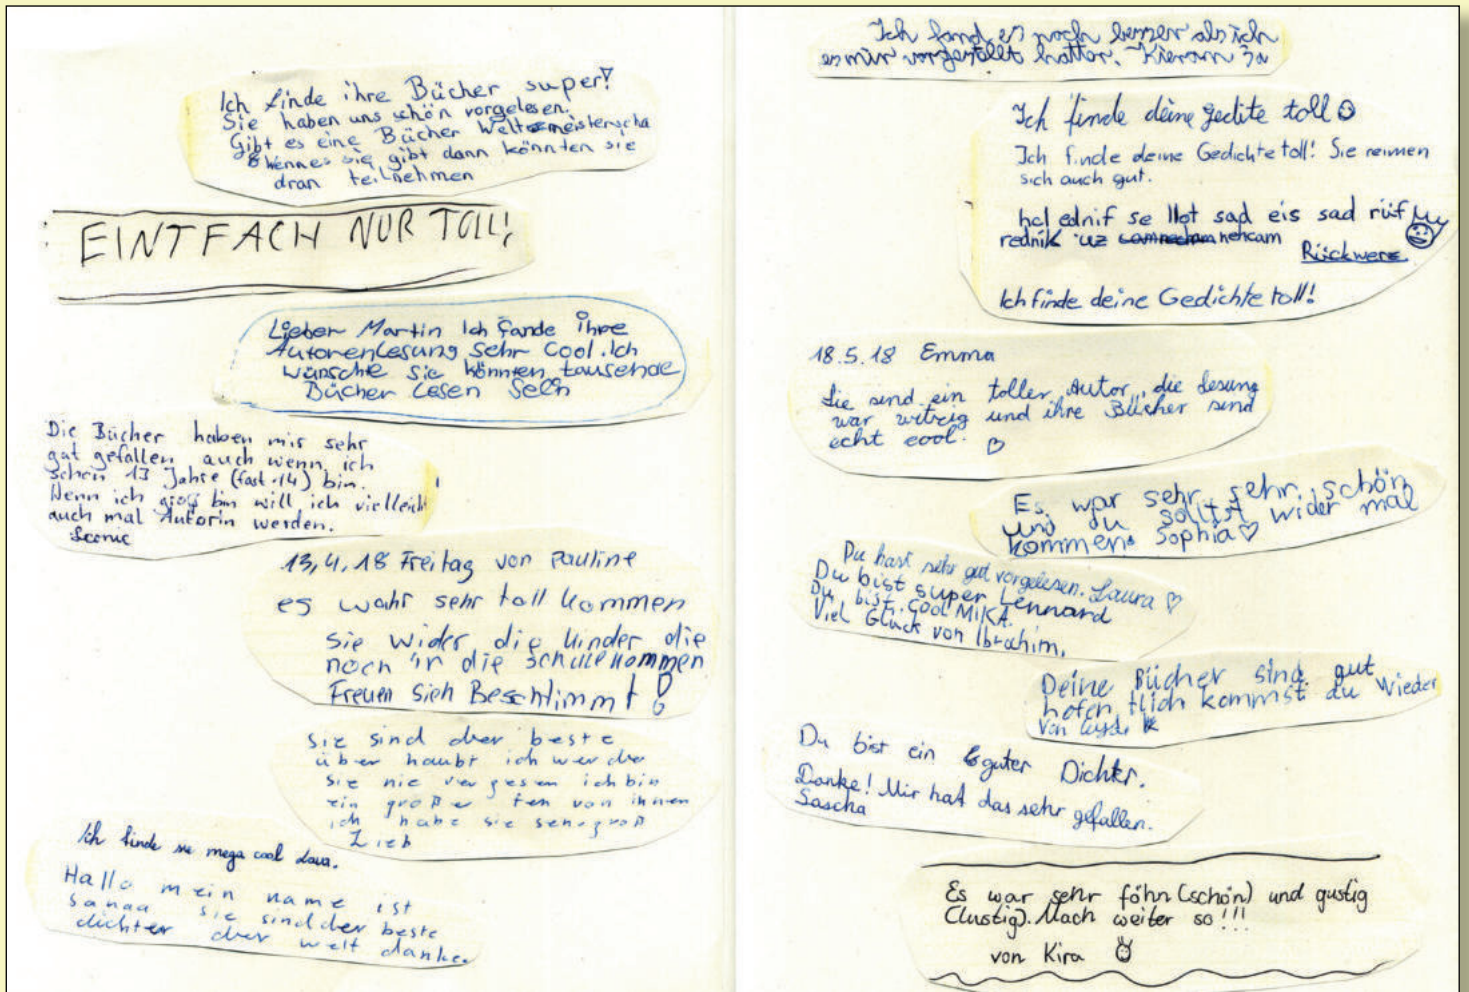 Ich finde ihre Bücher super!
Sie haben uns schön vorgelesen.
Gibt es eine Bücher Weltmeisterscha
Wennes sie gibt dann könnten sie
dran teilnehmen
EINTFACH NUR TOLL!
Lieber Martin Ich fande ihre
Autorenlesung sehr cool. Ich
wünschte sie könnten tausende
Bücher lesen
Die Bücher haben mir sehr
gut gefallen auch wenn ich
schon 13 Jahre (fast 14) bin.
Wenn ich groß bin will ich vielleich
auch mal Autorin werden.
13,4,18 Freitag von Pauline
es wahr sehr toll kommen
sie wider die kinder die
noch in die schule kommen
Freuen sich Beschtimmt!
Sie sind der beste
über haubt ich werde
sie nie vergesen ich bin
ein großer fen von ihnen
ich habe sie sehr groß
Lieb
Ich finde sie mega cool
Hallo mein name ist
sanaa sie sind der beste
dichter der welt danke.
Ich fand es noch besser als ich
es mir vorgestellt hatte. Kieran 3a
Ich finde deine gedite toll
Ich finde deine Gedichte toll! Sie reimen
sich auch gut.
hcI ednif se llot sad eis sad rüf
rednik uz nehcam
Rückwerz
Ich finde deine Gedichte toll!
18.5.18 Emma
Sie sind ein toller Autor, die Lesung
war witzig und ihre Bücher sind
echt cool. ♡
Es war sehr, sehr, schön
und du solltst wider mal
kommen. Sophia ♡
Du hast sehr gut vorgelesen. Laura ♡
Du bist super Lennard
Du bist cool MIKA.
Viel Glück von Ibrahim.
Deine Bücher sind gut
hofentlich kommst du wieder
von
Du bist ein guter Dichter.
Danke! Mir hat das sehr gefallen.
Sascha
Es war sehr föhn (schön) und gustig
(lustig). Mach weiter so!!!
von Kira